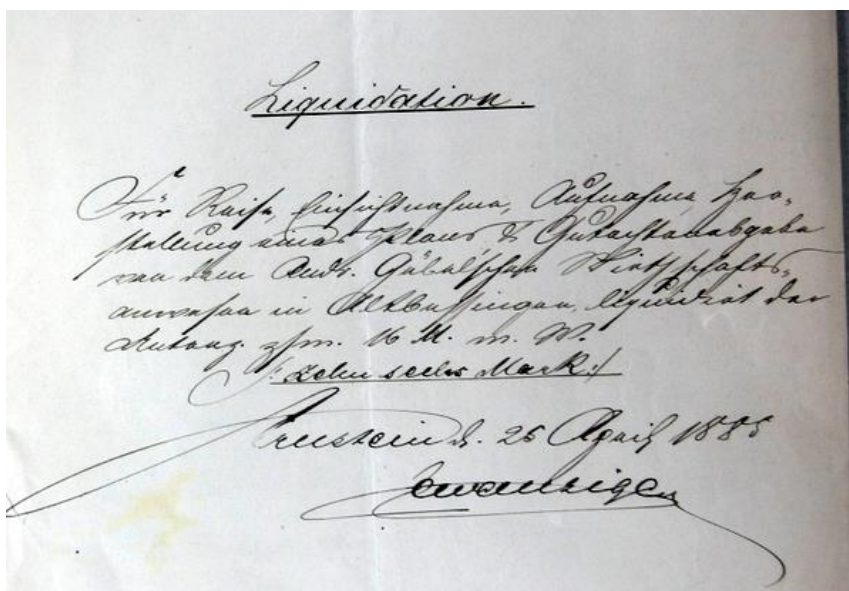 Liquidation.
Für Reise, Einsichtnahme, Aufnahme, Her-
stellung eines Planes & Gutachtenabgabe
von dem Andr. Göbel'schen Wirthschafts-
anwesen in Altbessingen, liquidirt der
16 M.
/: zehn sechs Mark :/
Arnstein d. 25 April 1885